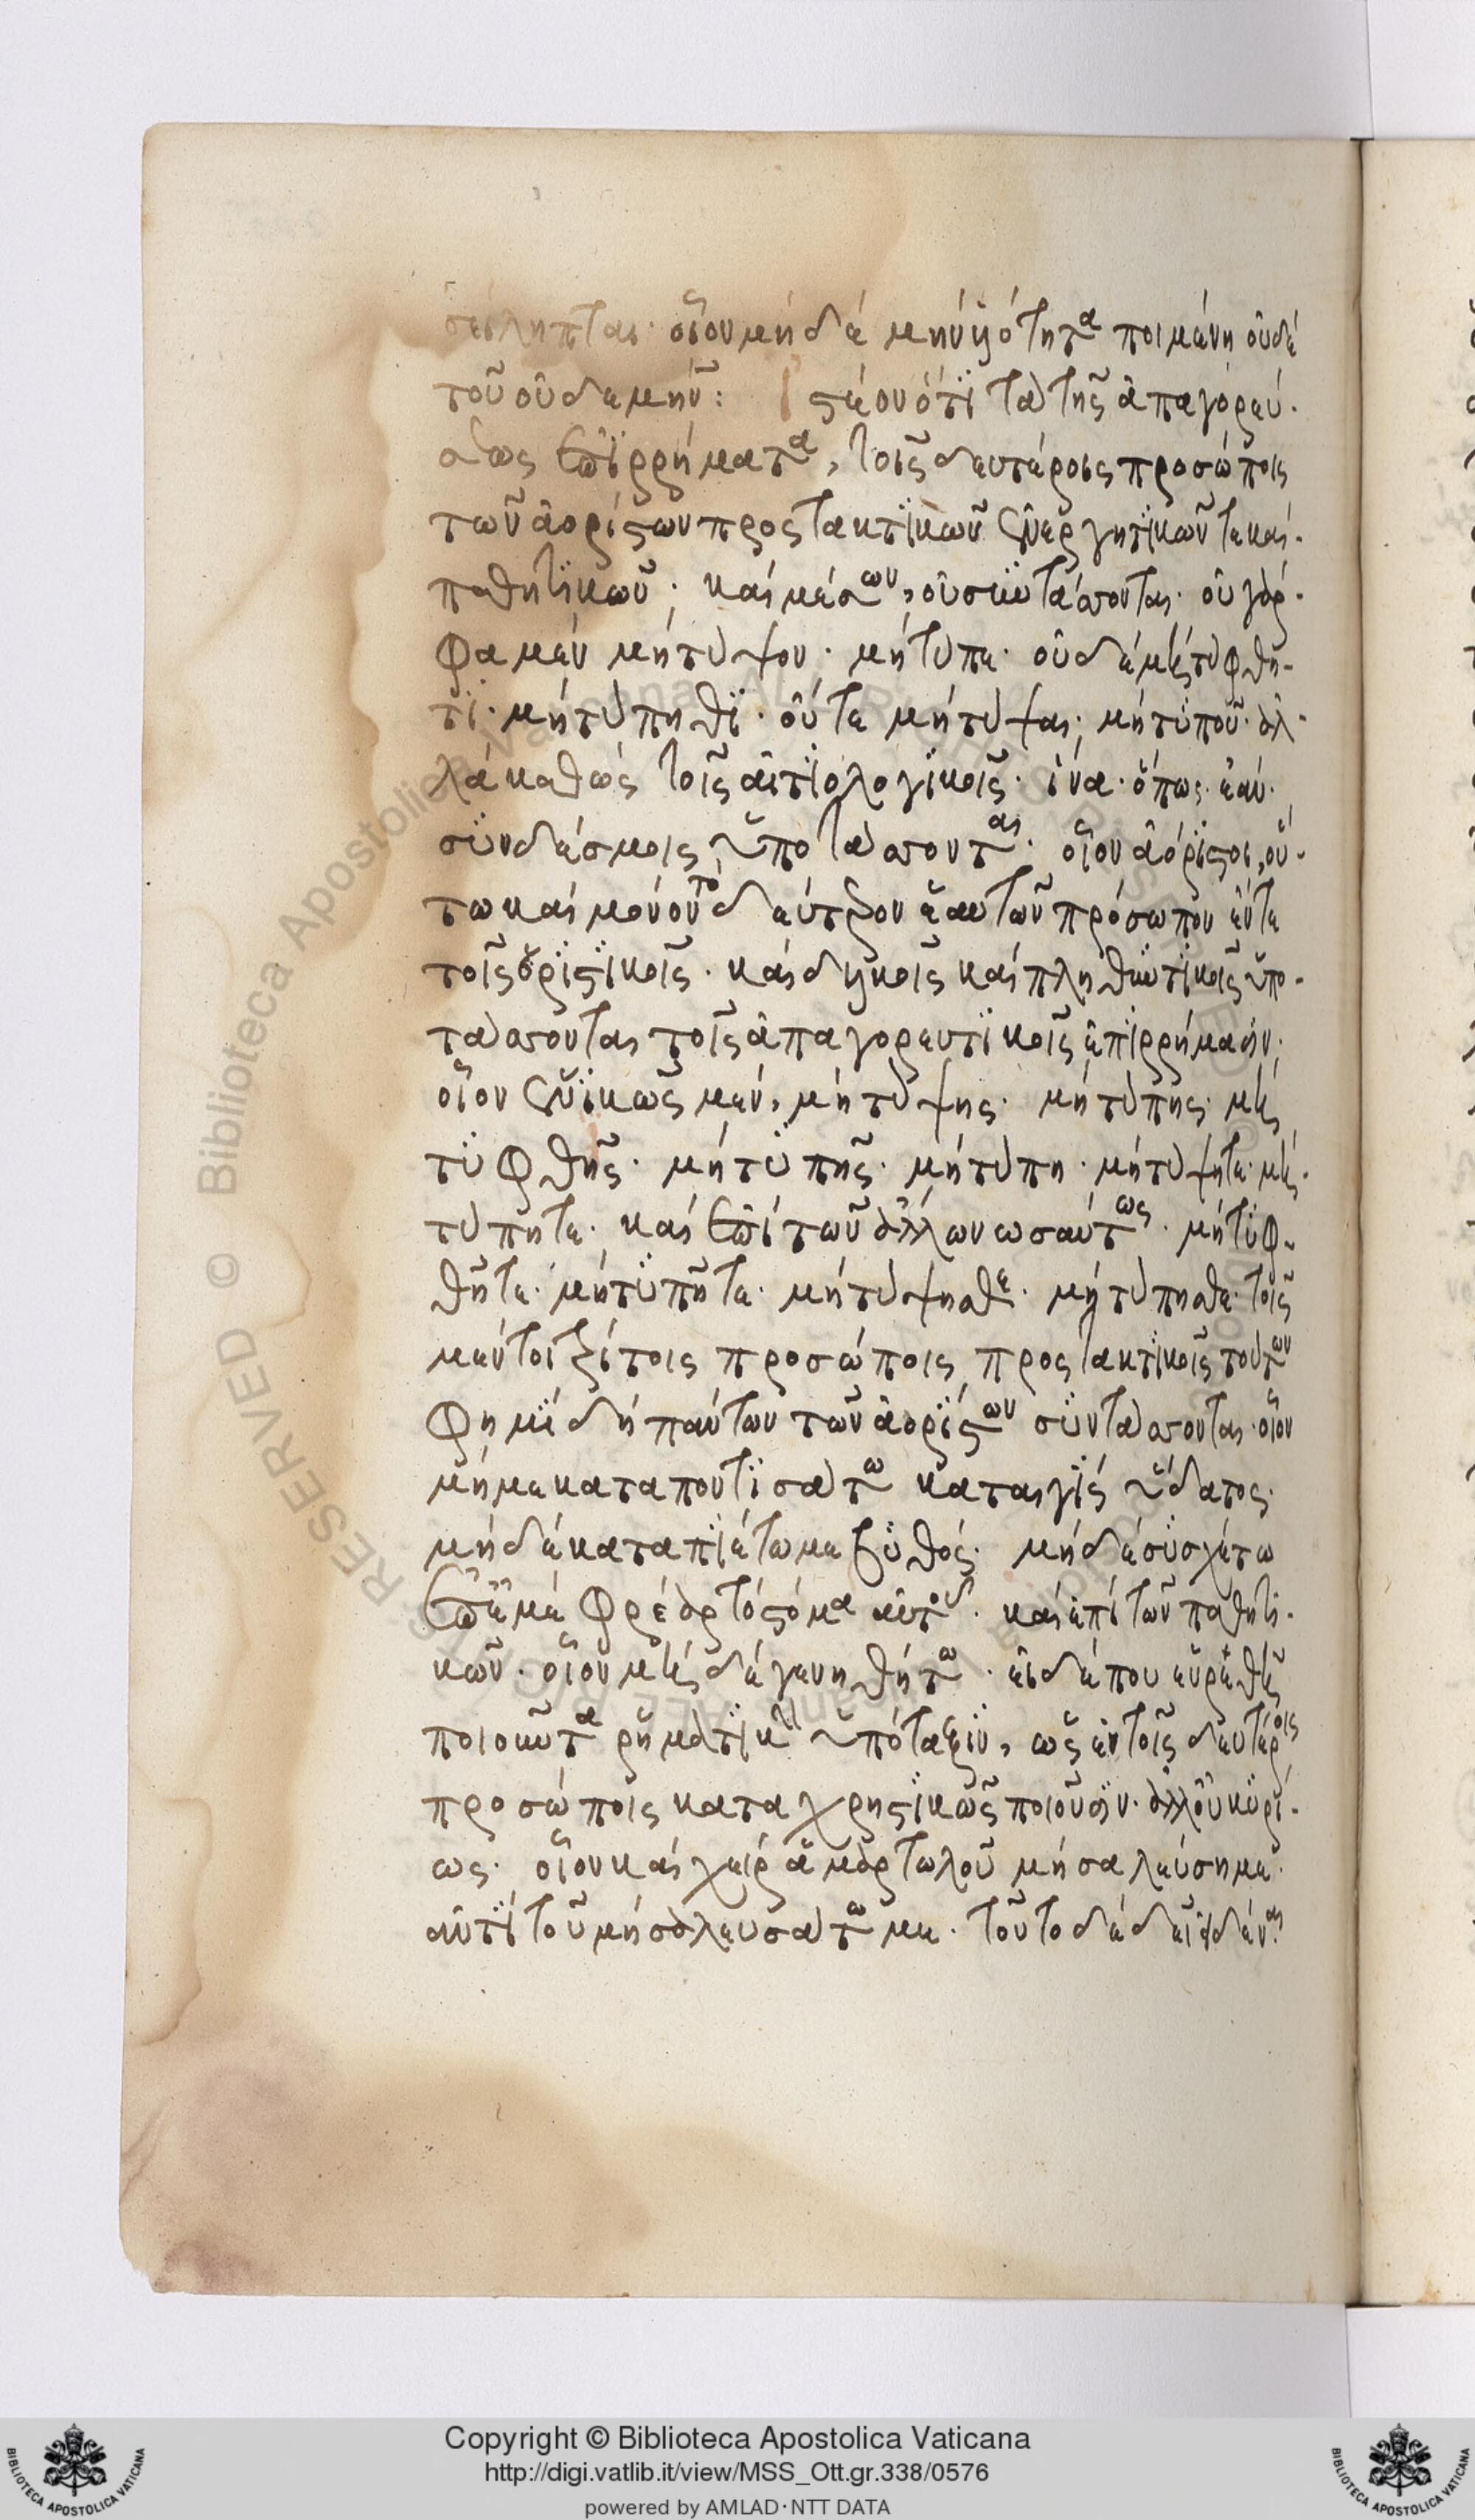 σείληπται· οἷον μὴ δὲ μὴν ἰότητα ποιμένη οὐδὲ
τοῦ οὐδεμὴν: ἰστέον ὅτι τὰ τῆς ἀπαγορεύ-
σεως ἐπιρρήματα, τοῖς δευτέροις προσώποις
τῶν ἀορίστων προστακτικῶν ἐνεργητικῶν τε καὶ
παθητικῶν· καὶ μέσων, οὐ συντάσσονται· οὐ γάρ
φαμεν μὴ τύψον· μὴ τύπε· οὐδὲ μὴ τύφθη-
τι· μὴ τύπηθι· οὔτε μὴ τύψαι· μὴ τυποῦ· ἀλ-
λὰ καθὼς τοῖς αἰτιολογικοῖς· ἵνα· ὅπως· ἐὰν·
συνδέσμοις ὑποτάσσονται· οἷον ἀόριστοι, οὕ-
τω καὶ μόνον τὸ δεύτερον ἑαυτῶν πρόσωπον ἔντε
τοῖς ὁριστικοῖς· καὶ δυικοῖς καὶ πληθυντικοῖς ὑπο-
τάσσονται τοῖς ἀπαγορευτικοῖς ἐπιρρήμασιν·
οἷον ἑνικῶς μὲν, μὴ τύψης· μὴ τύπης· μὴ
τυφθῆς· μὴ τυπῆς· μὴ τύπη· μὴ τύψητε· μὴ
τύπητε· καὶ ἐπὶ τῶν ἄλλων ὡσαύτως· μὴ τυφ-
θῆτε· μὴ τυπῆτε· μὴ τύψησθε· μὴ τύπησθε· τοῖς
μέντοι τρίτοις προσώποις προστακτικοῖς τούτων
φημὶ δὴ πάντων τῶν ἀορίστων συντάσσονται· οἷον
μή με καταποντισάτω καταιγὶς ὕδατος·
μὴ δὲ καταπιέτω με βυθός· μὴ δὲ συσχέτω
ἐπ' ἐμὲ φρέαρ τὸ στόμα αὐτοῦ· καὶ ἐπὶ τῶν παθητι-
κῶν· οἷον μὴ δὲ γενηθήτω· εἰ δέ που εὑρεθῆ
ποιοῦντα ῥηματικὴν ὑπόταξιν, ὡς ἐν τοῖς δευτέροις
προσώποις καταχρηστικῶς ποιοῦσιν· ἀλλ' οὐ κυρί-
ως· οἷον καὶ χεὶρ ἁμαρτωλοῦ μὴ σαλεύση με·
ἀντὶ τοῦ μὴ σαλευσάτω με· τοῦτο δὲ δεῖ εἰδέναι
Copyright © Biblioteca Apostolica Vaticana
http://digi.vatlib.it/view/MSS_Ott.gr.338/0576
powered by AMLAD·NTT DATA